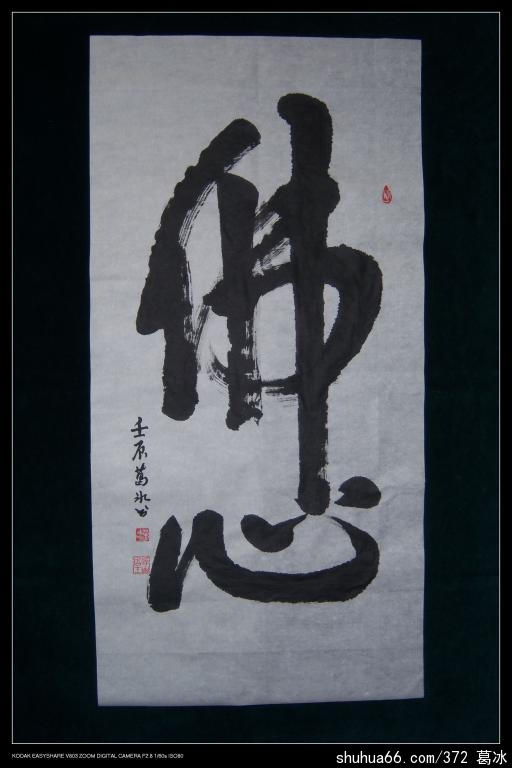 佛心
壬辰葛冰书
KODAK EASYSHARE V803 ZOOM DIGITAL CAMERA F2.8 1/60s ISO80
shuhua66.com/372 葛冰